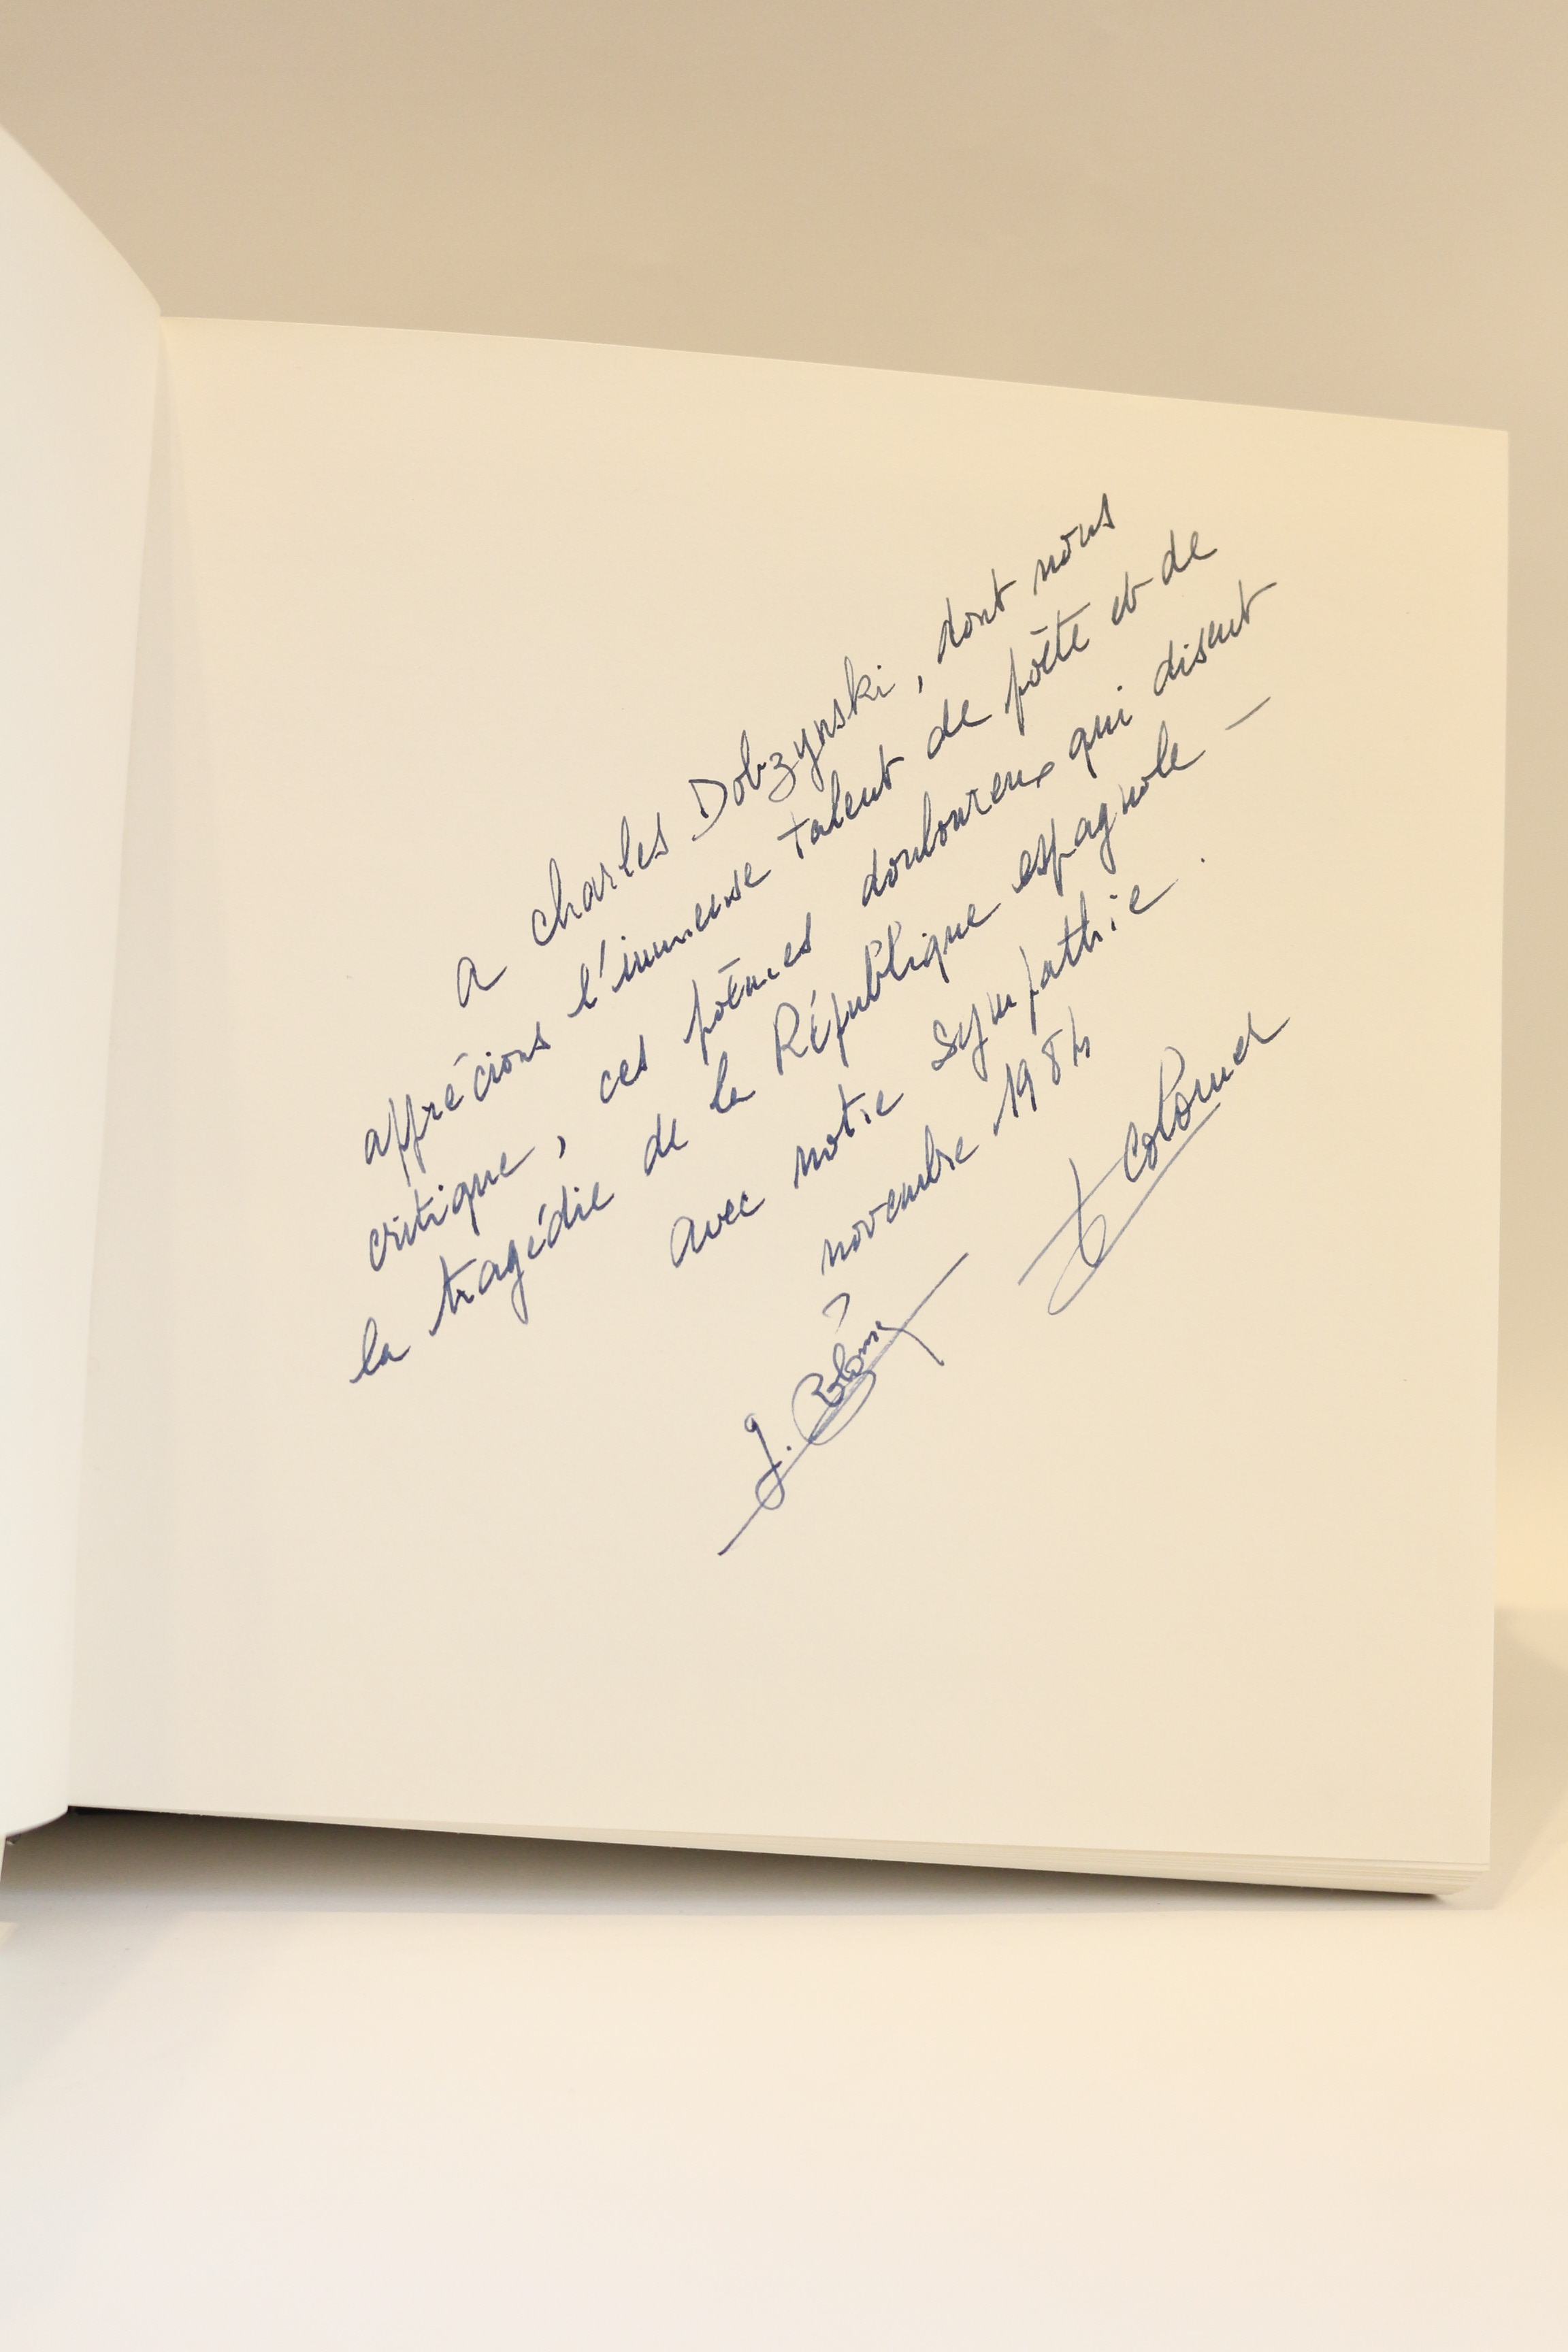 A Charles Dobzynski, dont nous
apprécions l'immense talent de poète et de
critique, ces poèmes douloureux qui disent
la tragédie de la République espagnole –
avec notre sympathie.
novembre 1984
Colomer
J.